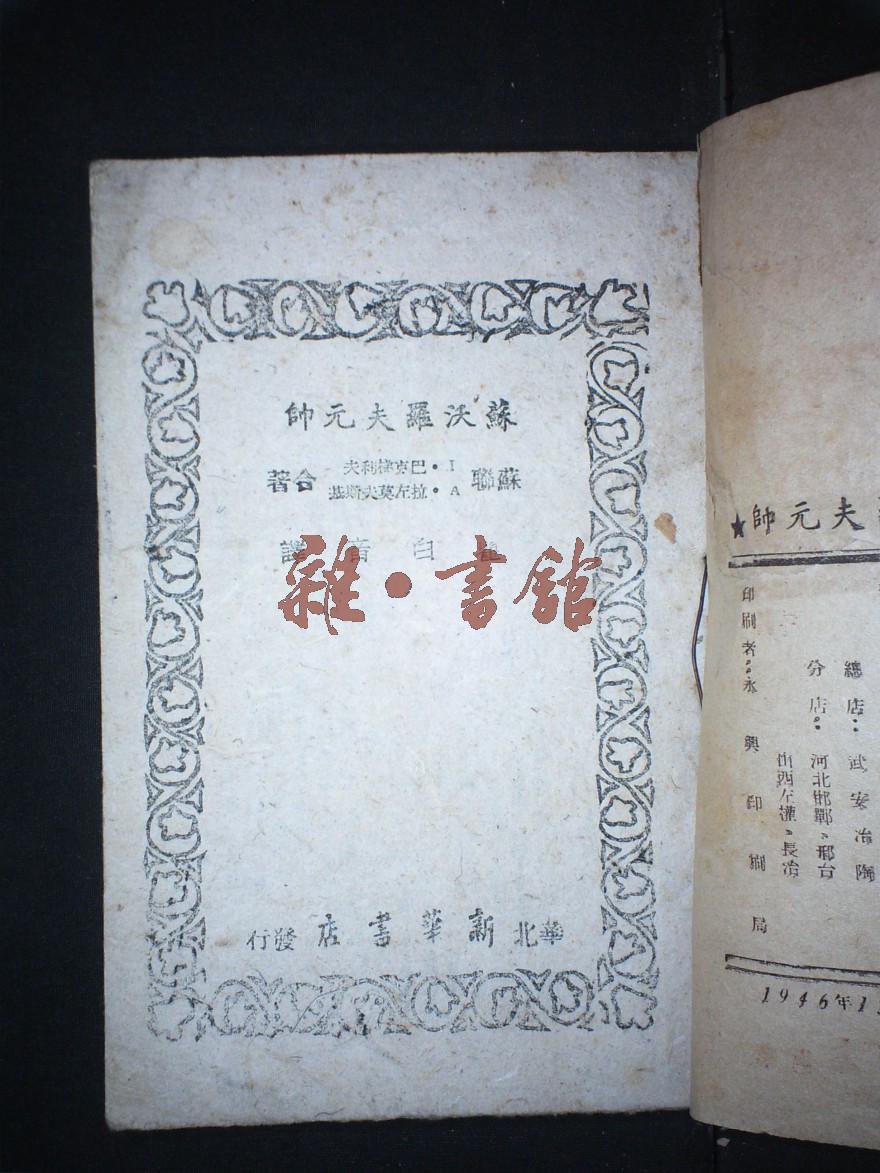 蘇沃羅夫元帥
蘇聯 I·巴京梯利夫 合著
A·拉左莫夫斯基
白音譯
雜·書館
華北新華書店發行
夫元帥★
總店：武安冶陶
分店：河北邯鄲、邢台
山西左權、長治
印刷者：永興印刷局
1946年1